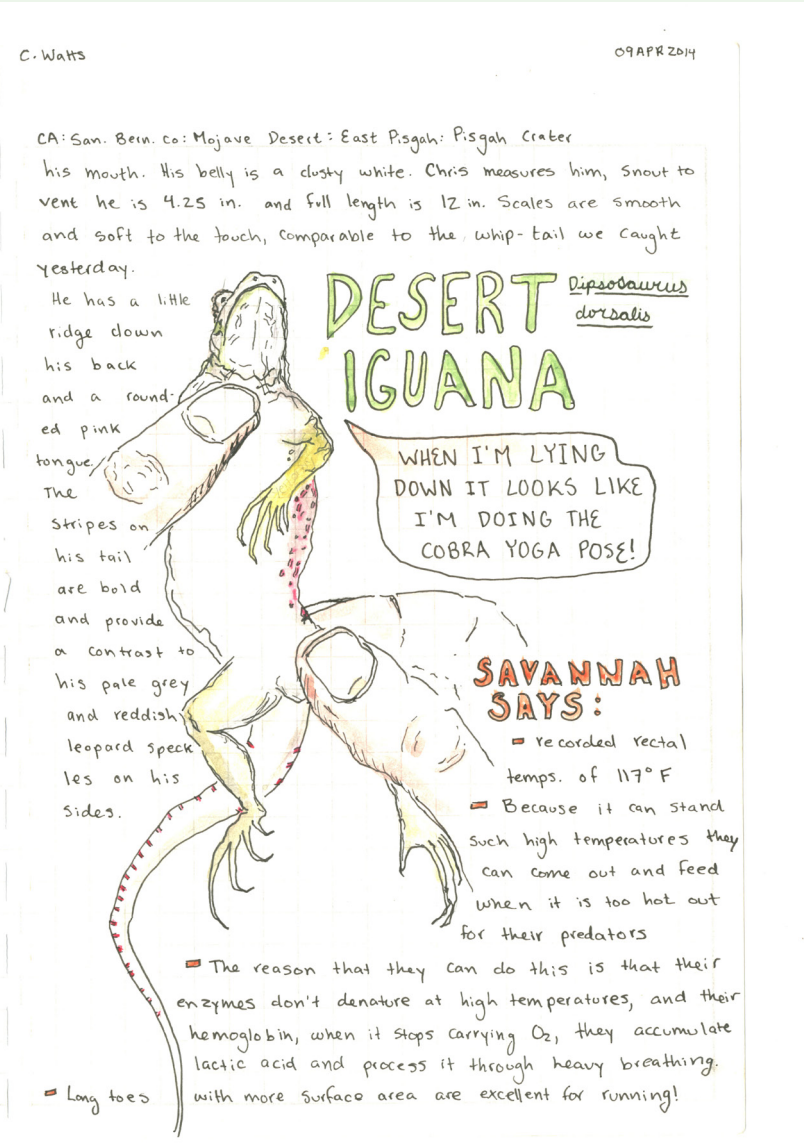 C. Watts
09APR2014
CA: San. Bern. Co: Mojave Desert: East Pisgah: Pisgah Crater
his mouth. His belly is a dusty white. Chris measures him, snout to
vent he is 4.25 in. and full length is 12 in. Scales are smooth
and soft to the touch, comparable to the whip-tail we caught
yesterday.
He has a little
ridge down
his back
and a round-
ed pink
tongue.
The
stripes on
his tail
are bold
and provide
a contrast to
his pale grey
and reddish
leopard speck
les on his
sides.
DESERT
IGUANA
Dipsosaurus
dorsalis
WHEN I'M LYING
DOWN IT LOOKS LIKE
I'M DOING THE
COBRA YOGA POSE!
SAVANNAH
SAYS:
recorded rectal
temps. of 117° F
Because it can stand
such high temperatures they
can come out and feed
when it is too hot out
for their predators
The reason that they can do this is that their
enzymes don't denature at high temperatures, and their
hemoglobin, when it stops carrying O2, they accumulate
lactic acid and process it through heavy breathing.
Long toes with more surface area are excellent for running!